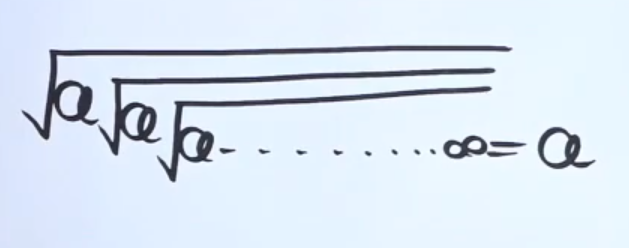 √a√a√a- - - - ......∞= a